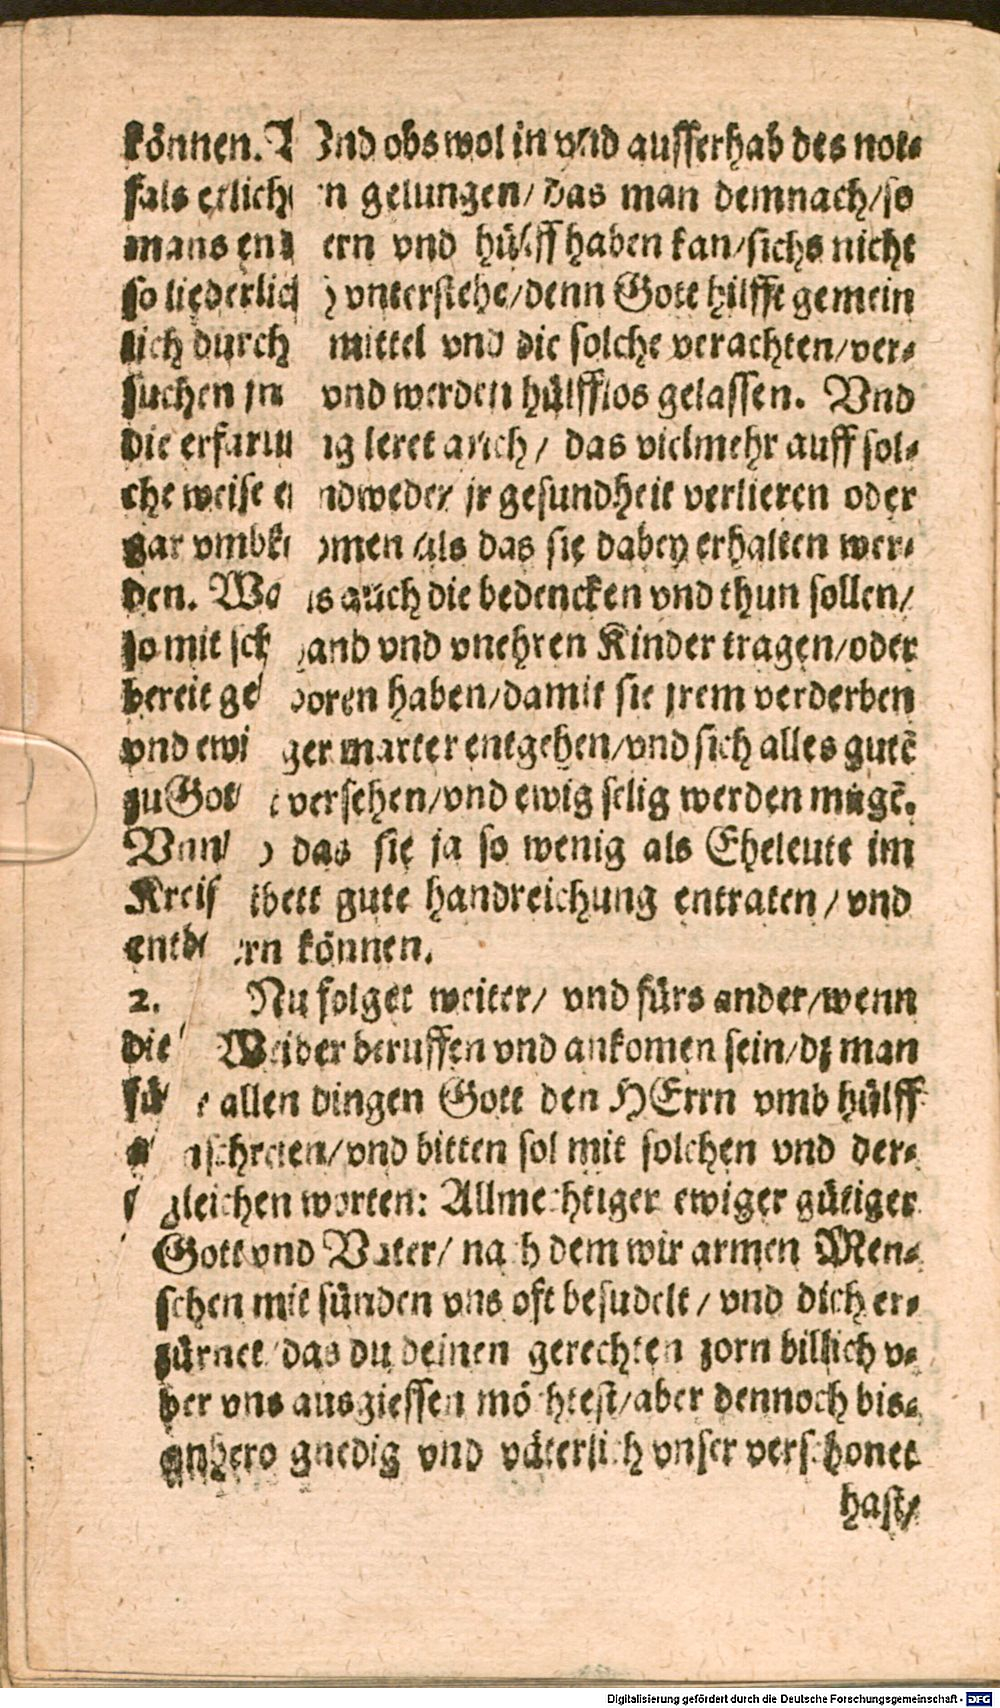 können. Vnd obs wol in vnd ausserhab des not⸗
fals etlichen gelungen/ das man demnach/so
mans endern vnd hülff haben kan/sichs nicht
so liederlich vnterstehe/denn Gott hilfft gemein
lich durch mittel vnd die solche verachten/ver⸗
suchen jn vnd werden hülfflos gelassen. Vnd
die erfarung leret auch/ das vielmehr auff sol⸗
che weise endweder jr gesundheit verlieren oder
gar vmbkomen als das sie dabey erhalten wer⸗
den. Was auch die bedencken vnd thun sollen/
so mit schand vnd vnehren Kinder tragen/oder
bereit geboren haben/damit sie jrem verderben
vnd ewiger marter entgehen/vnd sich alles gutẽ
zu Gott versehen/vnd ewig selig werden mügẽ.
Vnnd das sie ja so wenig als Eheleute im
Kreistbett gute handreichung entraten/ vnd
entbern können.
2. Nu folget weiter/ vnd fürs ander/wenn
die Weiber beruffen vnd ankomen sein/dz man
für allen dingen Gott den HErrn vmb hülff
anschreien/vnd bitten sol mit solchen vnd der⸗
gleichen worten: Allmechtiger ewiger gütiger
Gott vnd Vater/ nach dem wir armen Men⸗
schen mit sünden vns oft besudelt/ vnd dich er⸗
zürnet/das du deinen gerechten zorn billich v⸗
ber vns ausgiessen möchtest/aber dennoch bis⸗
anhero gnedig vnd väterlich vnser verschonet
hast/
Digitalisierung gefördert durch die Deutsche Forschungsgemeinschaft - DFG